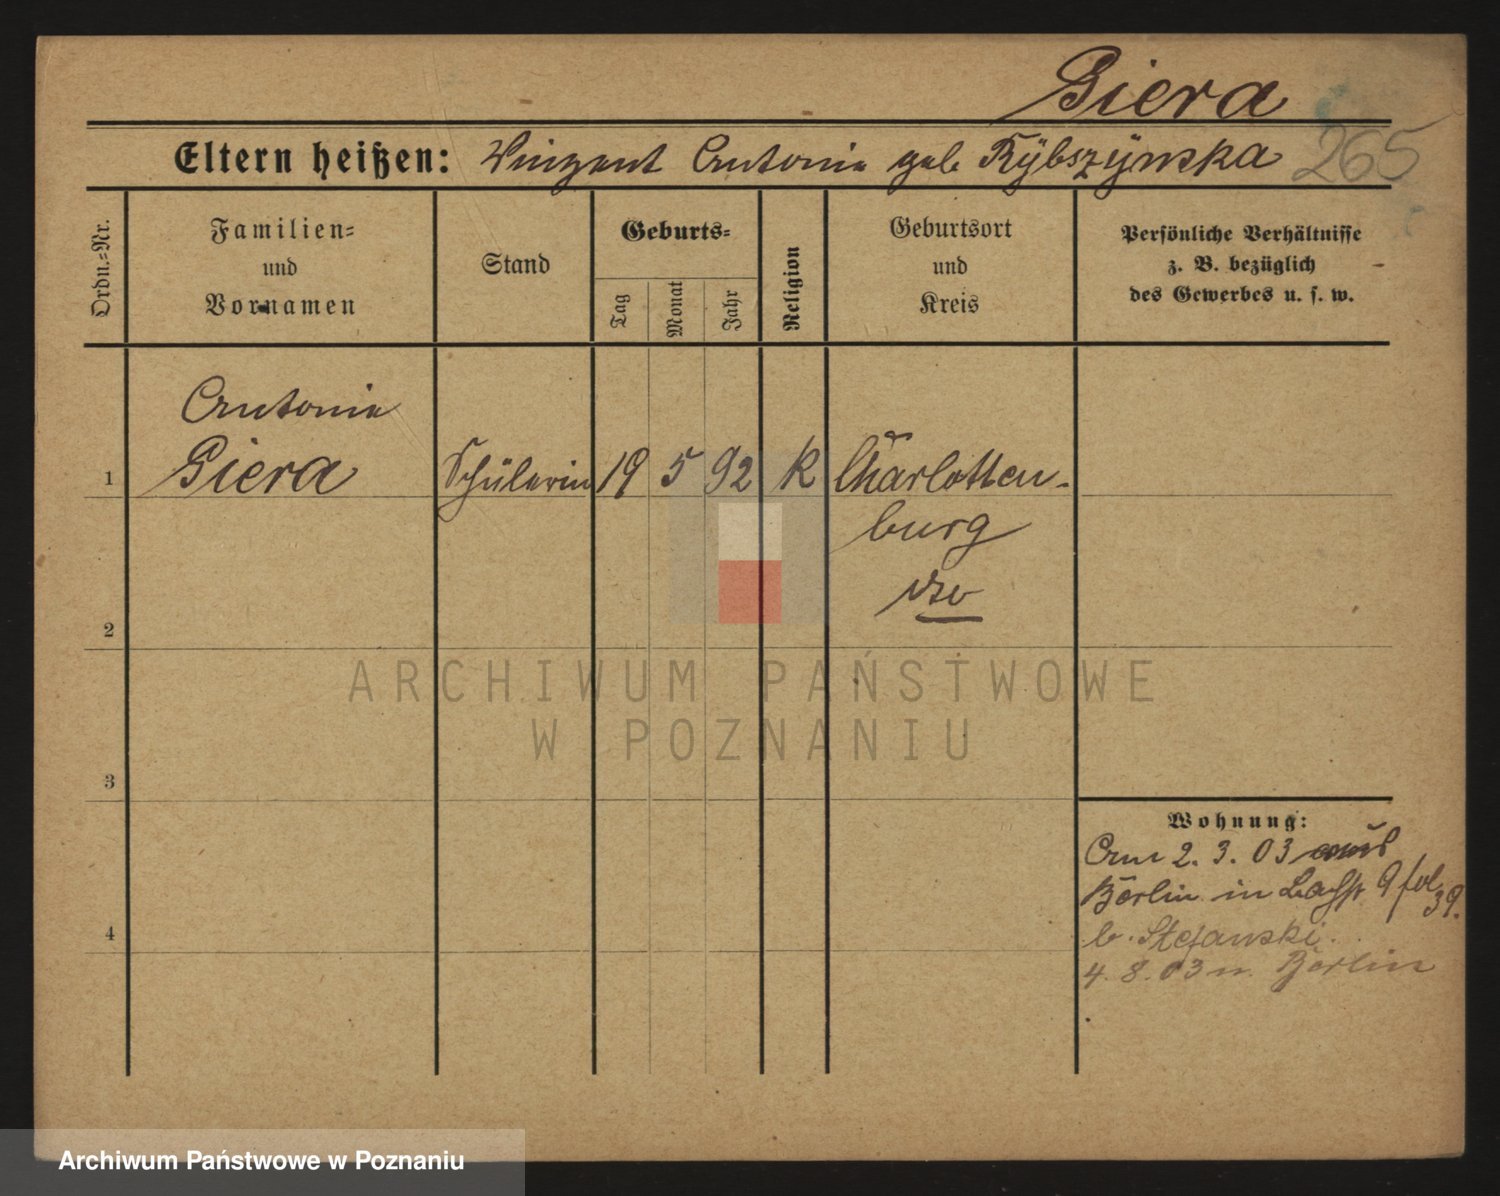 Giera
Eltern heißen: Vinzent Antonie geb Rÿbszÿnska 265
Ordn.=Nr.
Familien=
und
Vornamen
Stand
Geburts=
Tag
Monat
Jahr
Religion
Geburtsort
und
Kreis
Persönliche Verhältnisse
z. B. bezüglich
des Gewerbes u. s. w.
Antonie
1 Giera Schülerin 19 5 92 K Charlotten-
burg
2
3
4
Wohnung:
2. 3. 03 aus
Berlin in 9 fol
39.
b. Stefanski.
4. 8. 03 n. Berlin
ARCHIWUM PAŃSTWOWE
W POZNANIU
Archiwum Państwowe w Poznaniu